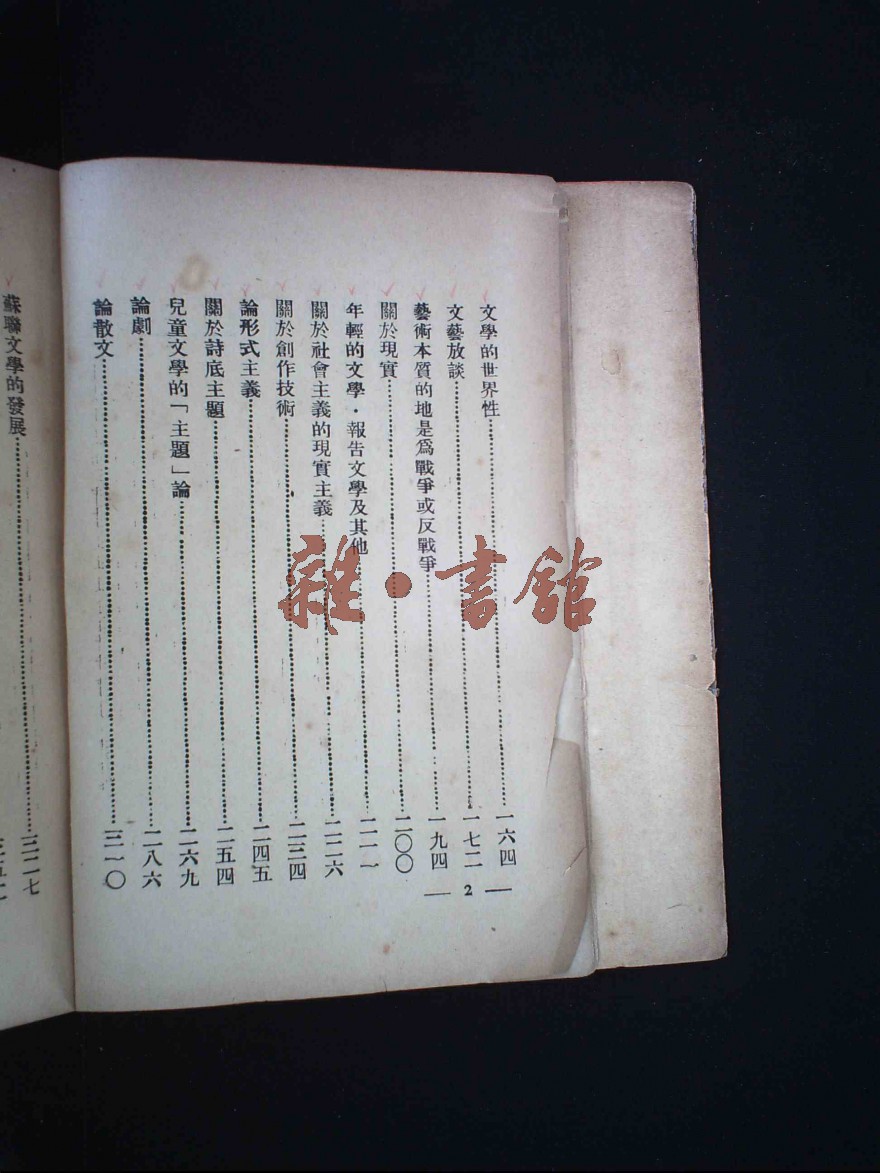 文學的世界性⋯⋯一六四
文藝放談⋯⋯一七二
藝術本質的地是爲戰爭或反戰爭⋯⋯一九四
關於現實⋯⋯二〇〇
年輕的文學・報告文學及其他⋯⋯二一一
關於社會主義的現實主義⋯⋯二二六
關於創作技術⋯⋯二三四
論形式主義⋯⋯二四五
關於詩底主題⋯⋯二五四
兒童文學的「主題」論⋯⋯二六九
論劇⋯⋯二八六
論散文⋯⋯三一〇
— 2 —
蘇聯文學的發展⋯⋯三二七
雜・書館